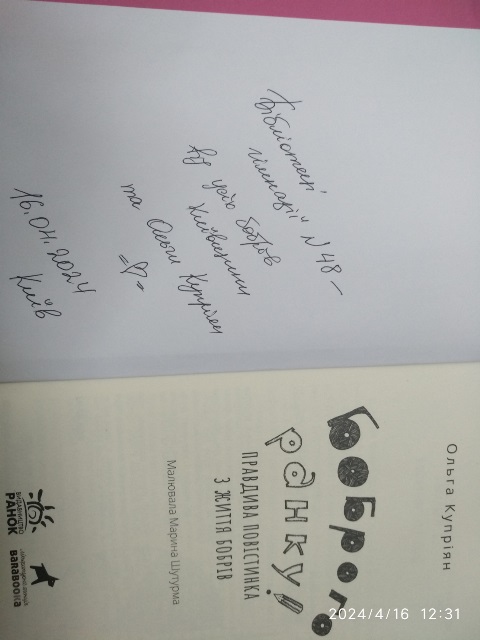 Бібліотеці
гімназії N 48 –
від усіх бобрів
Київщини
та Ольги Купріян
=♡=
16.04.2024
Київ
Ольга Купріян
Боброго
ранку!
ПРАВДИВА ПОВІСТИНКА
З ЖИТТЯ БОБРІВ
Малювала Марина Шутурма
ВИДАВНИЦТВО
РАНОК
BARABOOKA
2024/4/16 12:31